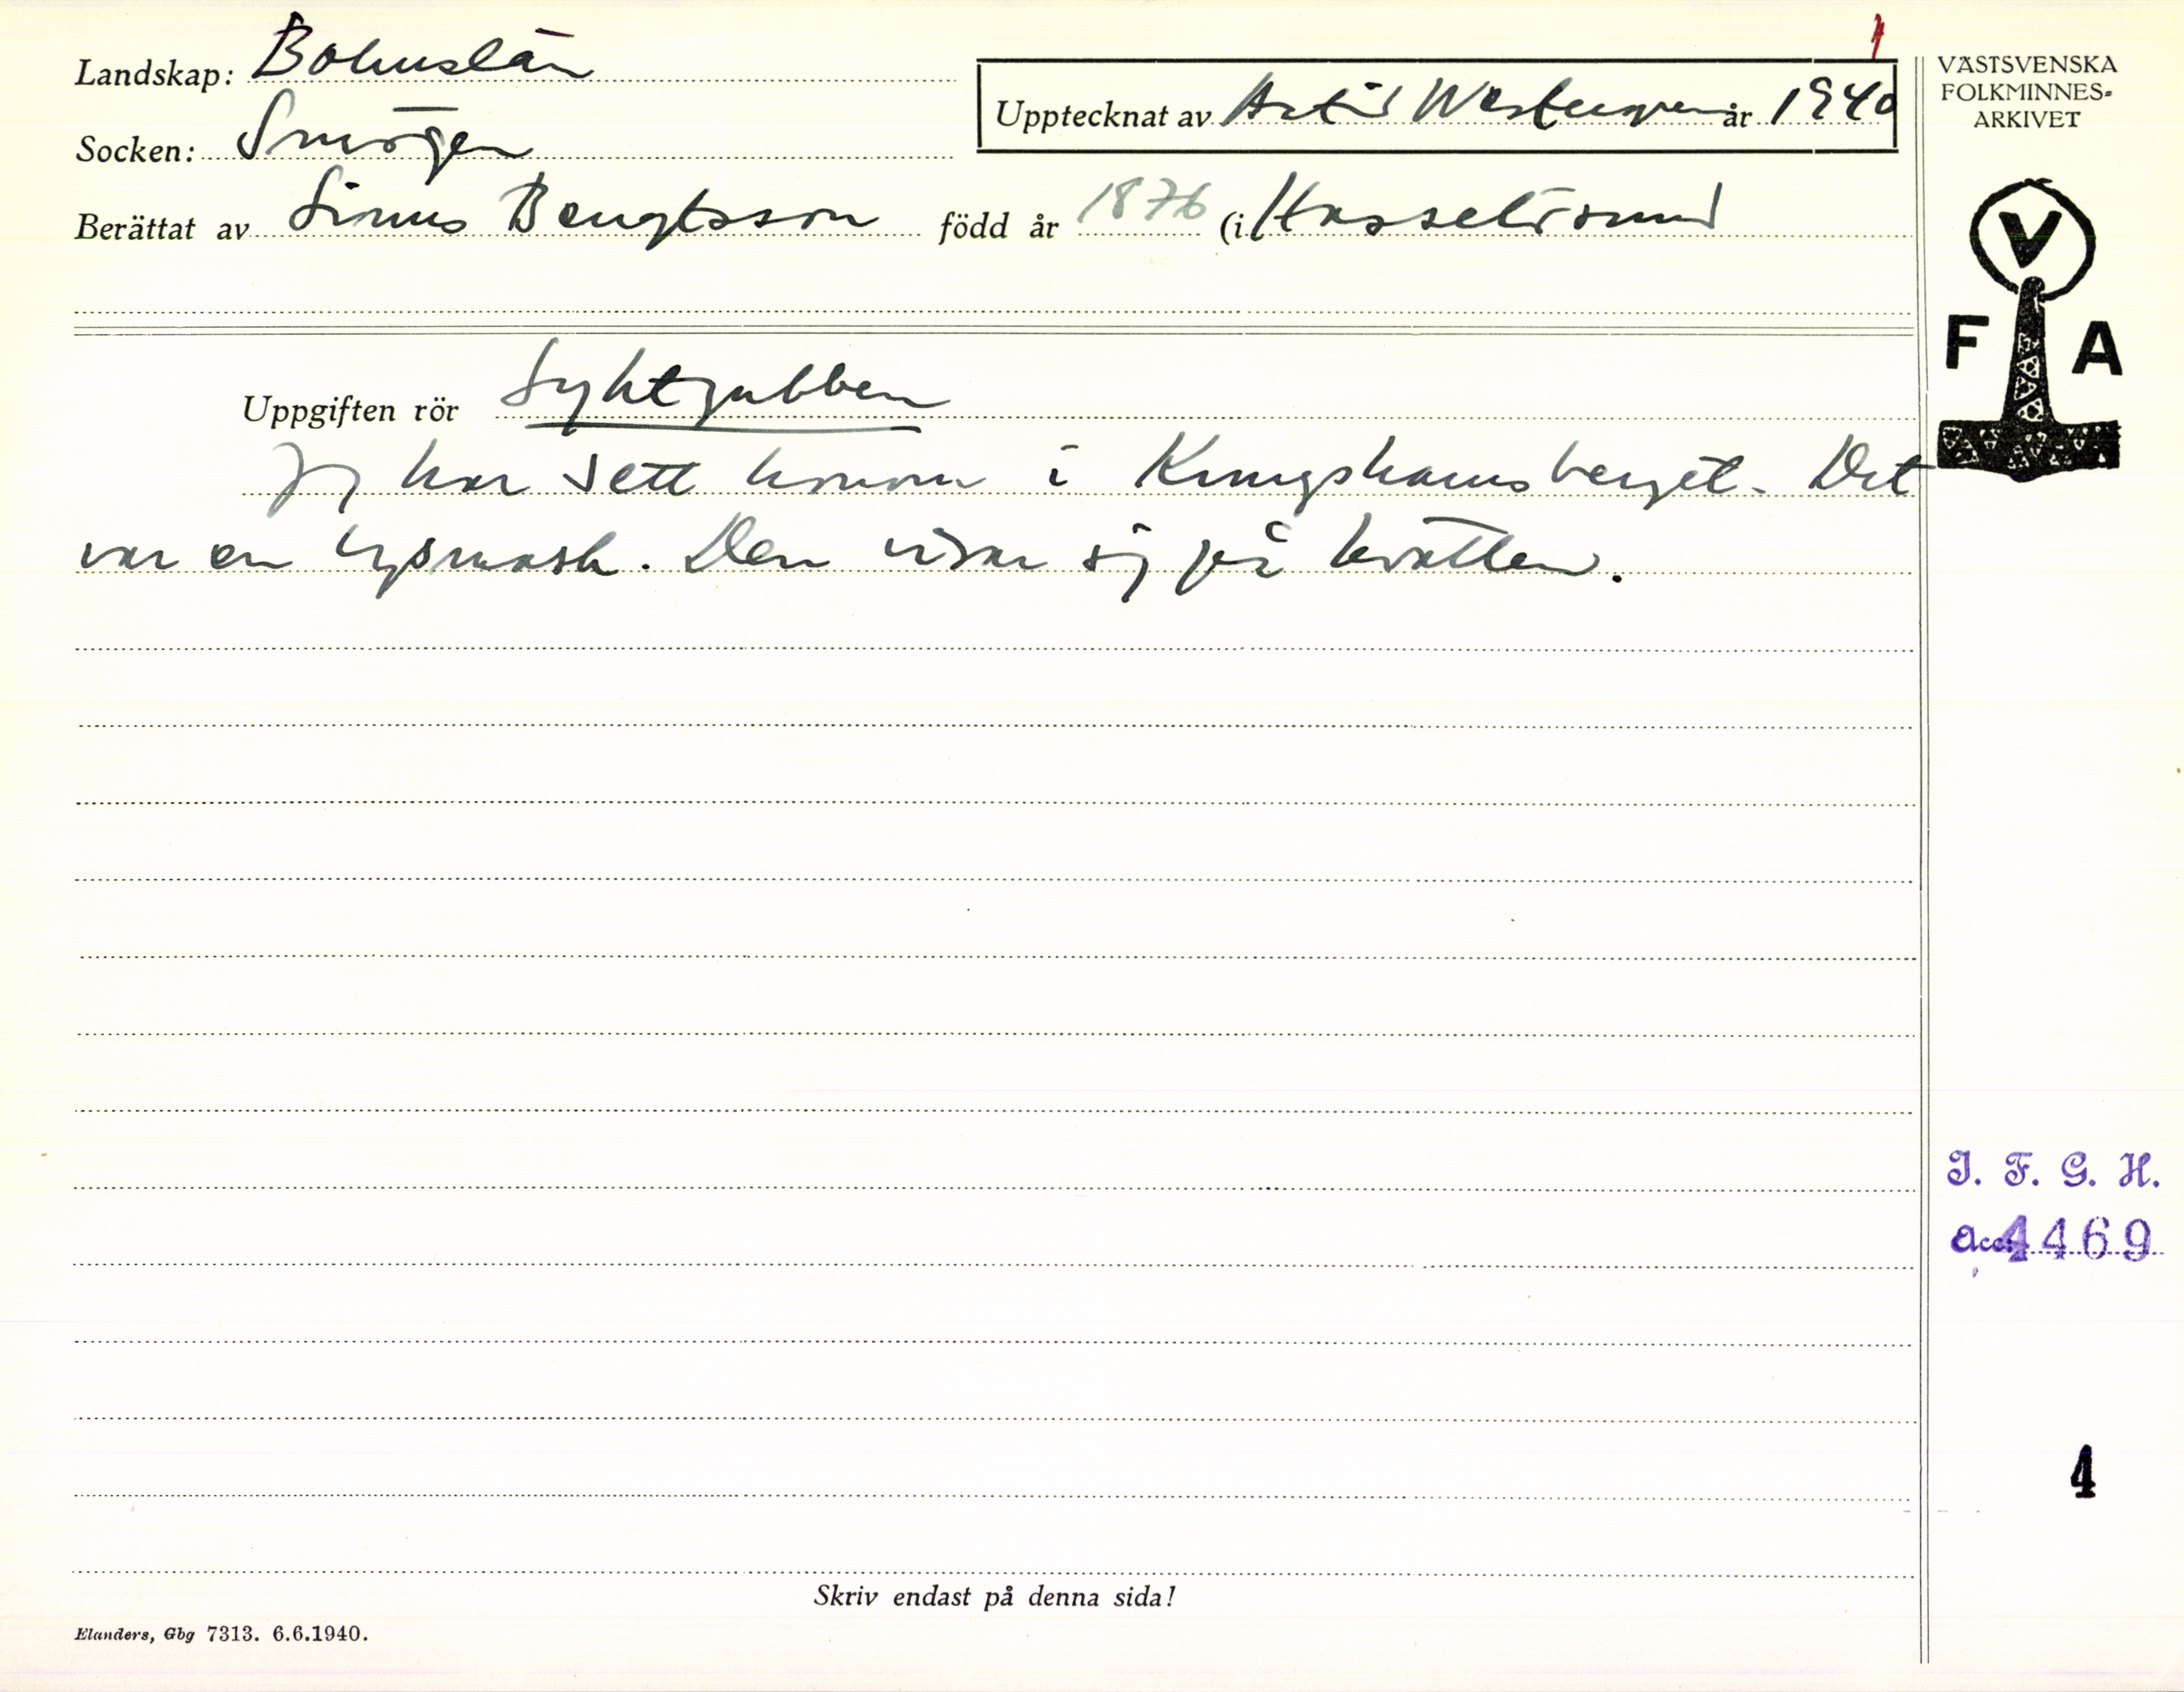 Landskap: Bohuslän
Socken: Smögen
Upptecknat av Arvid år 1940
VÄSTSVENSKA
FOLKMINNES-
ARKIVET
Berättat av Linus Bengtsson född år 1876 (i Hasselösund
V
F A
Uppgiften rör Lyktgubben
Jag har sett honom i Kungshamsberget. Det
var en lysmask. Den visar sig på kvällen.
I. F. G. H.
Acc. 4469
4
Skriv endast på denna sida!
Elanders, Gbg 7313. 6.6.1940.